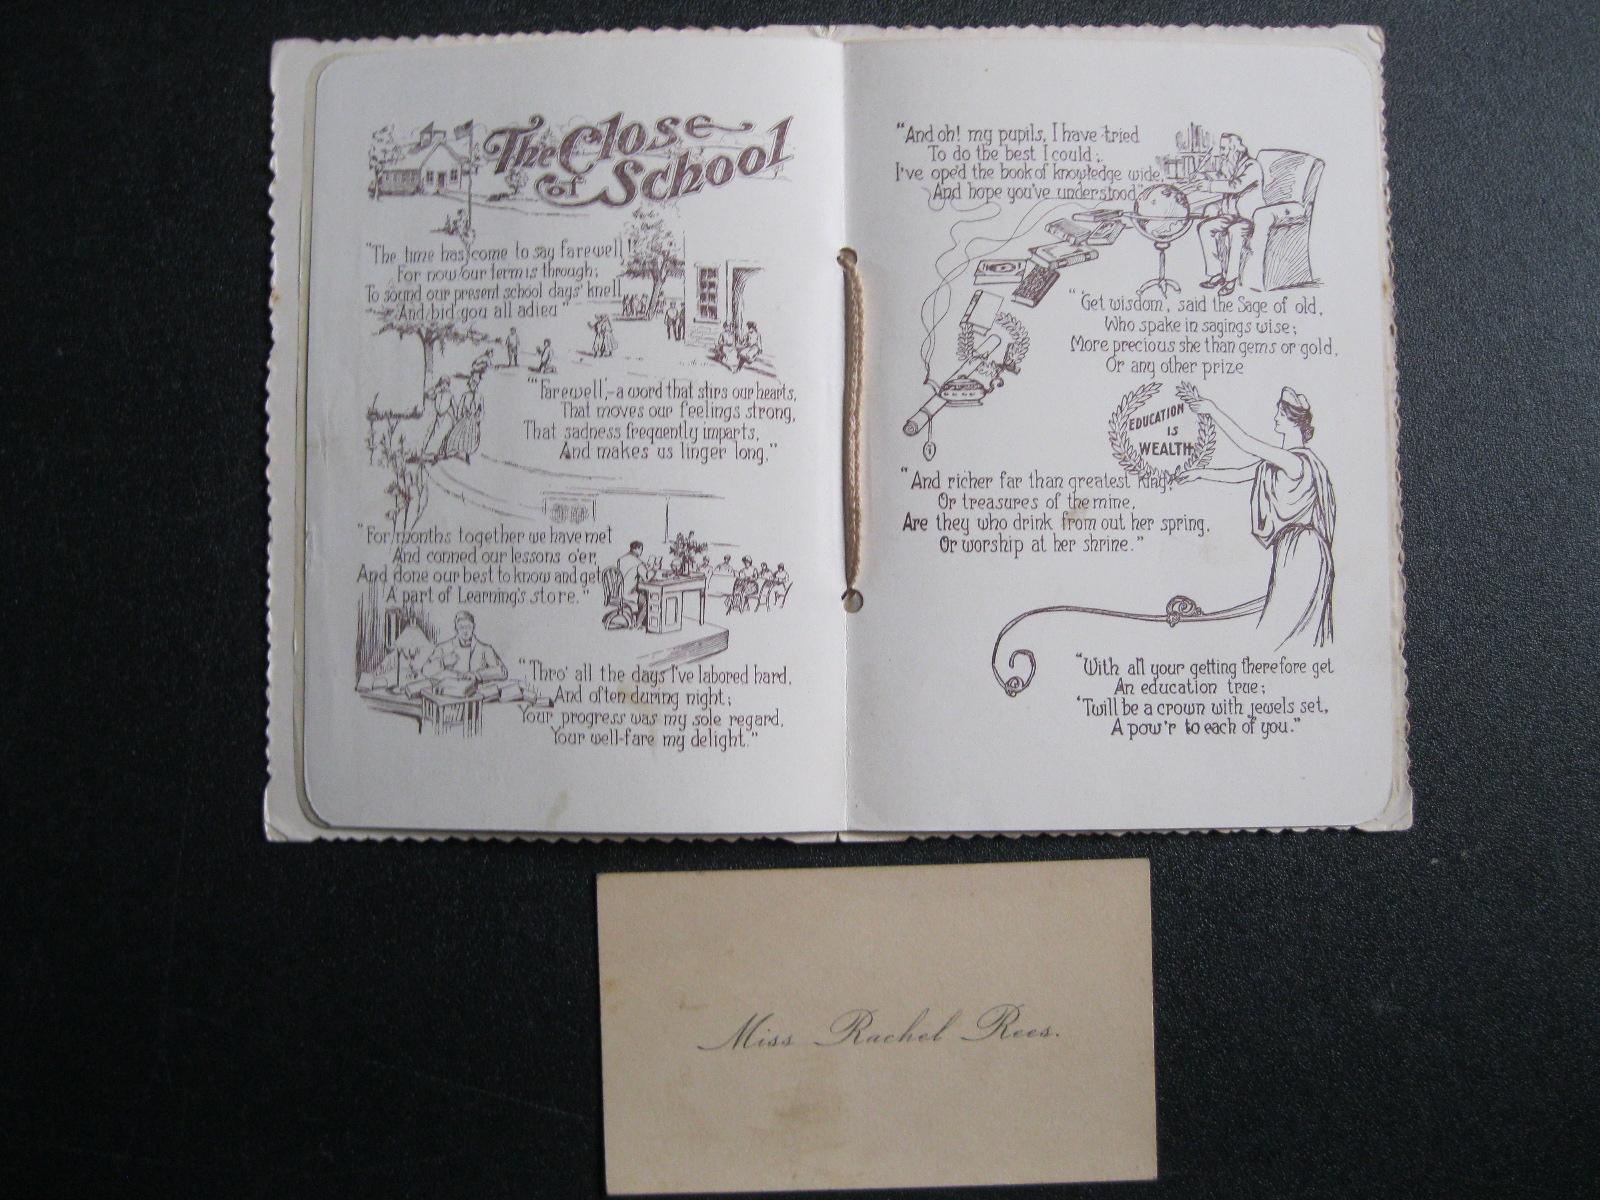 The Close
of School
"The time has come to say farewell!
For now our term is through;
To sound our present school days' knell
And bid you all adieu"
"'Farewell,'-a word that stirs our hearts,
That moves our feelings strong,
That sadness frequently imparts,
And makes us linger long."
"For months together we have met
And conned our lessons o'er,
And done our best to know and get
A part of Learning's store."
"Thro' all the days I've labored hard,
And often during night;
Your progress was my sole regard,
Your well-fare my delight."
"And oh! my pupils, I have tried
To do the best I could;
I've oped the book of knowledge wide,
And hope you've understood"
"'Get wisdom', said the Sage of old,
Who spake in sayings wise;
More precious she than gems or gold,
Or any other prize
EDUCATION
IS
WEALTH
"And richer far than greatest king,
Or treasures of the mine,
Are they who drink from out her spring,
Or worship at her shrine."
"With all your getting therefore get
An education true;
'Twill be a crown with jewels set,
A pow'r to each of you."
Miss Rachel Rees.